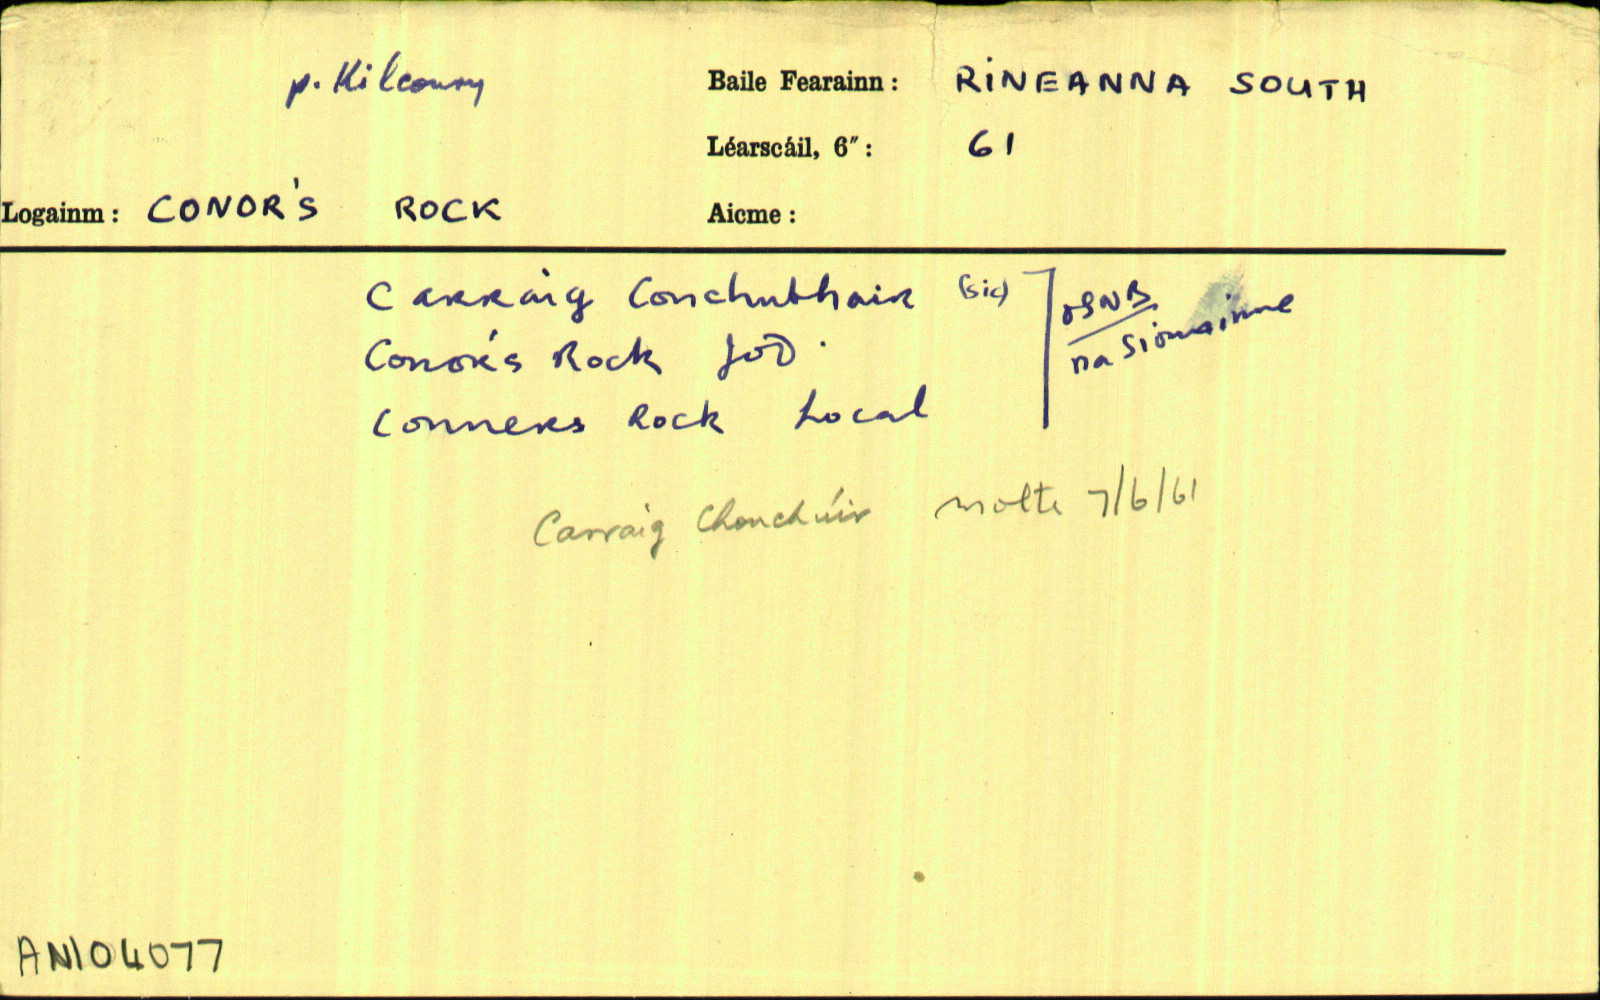 p. Kilconry
Baile Fearainn: RINEANNA SOUTH
Léarscáil, 6″: 61
Logainm: CONOR'S ROCK
Aicme:
Carraig Conchubhair (sic)
Conor's Rock JOD.
Conners Rock Local
OSNB
na Sionainne
Carraig Chonchúir molta 7/6/61
AN104077